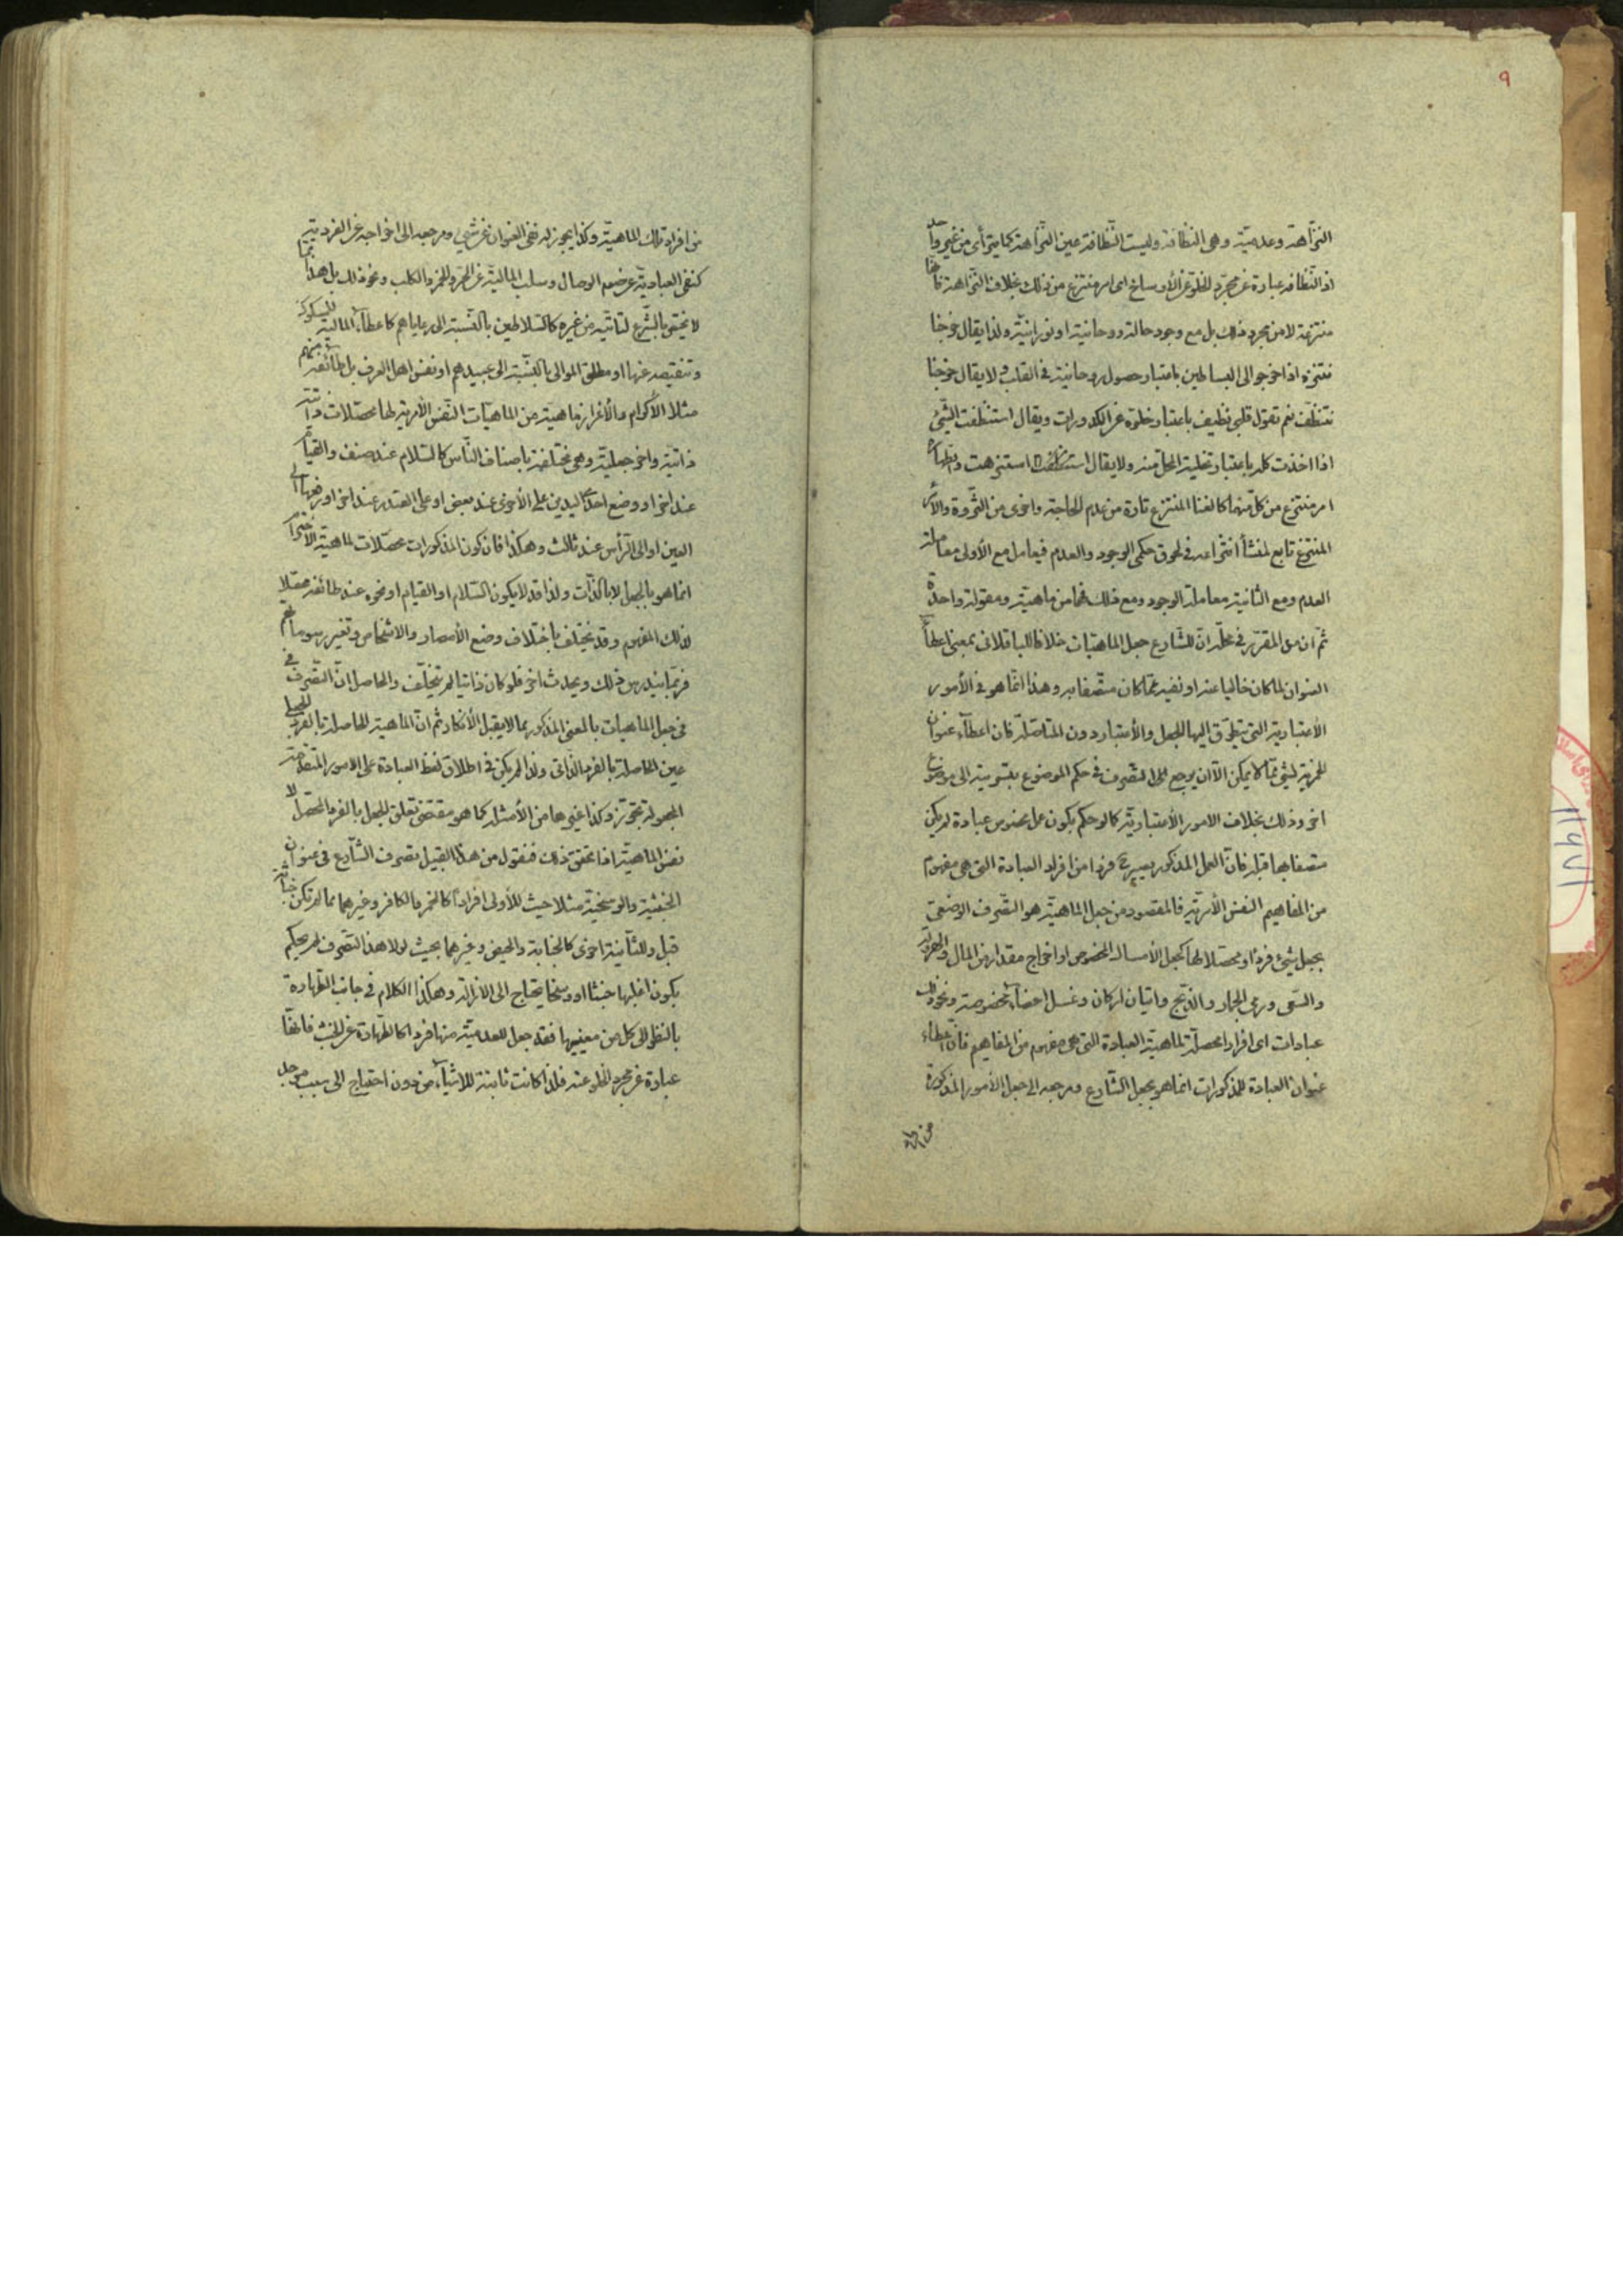 ٩
النزاهة وعدمية وهى النظافة وليست النظافة عين النزاهة كما يترأى من غير واحد
اذ النظافه عبارة عن مجرد الخلو عن الأوساخ اى امر منتزع من ذلك بخلاف النزاهة فانها
منتزعة لا من مجرد ذلك بل مع وجود حالة روحانية او نورانية ولذا يقال خرجنا
نتنزه اذا خرجوا الى البساطين باعتبار حصول روحانية فى القلب ولا يقال خرجنا
نتنظف نعم تقول قلبى نظيف باعتبار خلوه عن الكدورات ويقال استنظفت الشىء
اذا اخذت كله باعتبار تخلية المحل منه ولا يقال استنزهت والطهارة
امر منتزع من كل منهما كالغنا المنتزع تارة من عدم الحاجة واخرى من الثروة والأمر
المنتزع تابع لمنشأ انتزاعه فى لحوق حكمى الوجود والعدم فيعامل مع الأولى معاملة
العدم ومع الثانية معاملة الوجود ومع ذلك فهما من ماهية ومقولة واحدة
ثم ان من المقرر فى محله ان للشارع جعل الماهيات خلافا للباقلانى بمعنى اعطاء
العنوان لما كان خاليا عنه او نفيه عما كان متصفا به وهذا انما هو فى الأمور
الأعتبارية التى يتطرق اليها الجعل والأعتبار دون المتأصلة فان اعطاء عنوان
الخمرية لشئ مما لا يمكن الا ان يرجع الى التصرف فى حكم الموضوع بتسويته الى موضوع
اخر وذلك بخلاف الامور الأعتبارية كما لو حكم بكون عمل مخصوص عبادة لم يكن
متصفا بها قبله فان العمل المذكور يصير ح فردا من افراد العبادة التى هى مفهوم
من المفاهيم النفس الأمرية فالمقصود من جعل الماهية هو التصرف الوضعى
بجعل شئ فردا ومحصلا لها كجعل الأمساك المخصوص او اخراج مقدار من المال والهرولة
والسعى ورمى الجمار والذبح واتيان اركان وغسل اعضاء مخصوصة ونحو ذلك
عبادات اى افرادا محصلة لماهية العبادة التى هى مفهوم من المفاهيم فان اعطاء
عنوان العبادة للمذكورات انما هو بجعل الشارع ومرجعه الى جعل الأمور المذكورة
من افراد
من افراد تلك الماهية وكذا يجوز له نفى العنوان عن شئ ومرجعه الى اخراجه عن الفردية
كنفى العبادية عن صوم الوصال وسلب المالية عن الحر والخمر والكلب ونحو ذلك بل هذا مما
لا يختص بالشرع لتأتيه من غيره كالسلاطين بالنسبة الى رعاياهم كاعطاء المالية للمسكوك
وتنقيصه عنها او مطلق الموالى بالنسبة الى عبيدهم او نفس اهل العرف بل طائفة منهم
مثلا الأكرام والأغراز ماهية من الماهيات النفس الأمرية لها محصلات
ذاتية واخر جعلية وهى مختلفة باصناف الناس كالسلام عند صنف والقيام
عند اخر او وضع احدى اليدين على الأخرى عند بعض او على الصدر عند اخر او رفعها الى
العين او الى الرأس عند ثالث وهكذا فان كون المذكورات محصلات لماهية الأحترام
انما هو بالجعل لا بالذات ولذا قد لا يكون السلام او القيام او نحوه عند طائفة محصلا
لذلك المفهوم وقد يختلف باختلاف وضع الأمصار والاشخاص وتغير رسومانهم
فربما يندرس ذلك ويحدث اخر فلو كان ذاتيا لم يتخلف والحاصل ان التصرف فى
فى جعل الماهيات بالمعنى المذكور مما لا يقبل الأنكار ثم ان الماهية الحاصلة بالفرد الجعلى
عين الحاصلة بالفرد الذاتى ولذا لم يكن فى اطلاق لفظ العبادة على الامور المتقدمة
المجعولة تجوز وكذا غيرها من الأمثلة كما هو مقتضى تعلق الجعل بالفرد المحصل لا
نفس الماهية اذا تحقق ذلك فنقول من هذا القبيل تصرف الشارع فى عنوان
الخبثية والوسخية مثلا حيث للأولى افرادا كالخمر والكافر وغيرهما مما لم تكن خباثة
قبل وللثانية اخرى كالجنابة والحيض وغيرهما بحيث لولا هذا التصرف لم يحكم
بكون اغلبها خبثا او وسخا يحتاج الى الازالة وهكذا الكلام فى جانب الطهارة
بالنظر الى كل من معنييها فقد جعل للعدمية منها فردا كالطهارة عن الخبث فانها
عبارة عن مجرد الخلو عنه فلذا كانت ثابتة للاشياء من دون احتياج الى سبب موجد